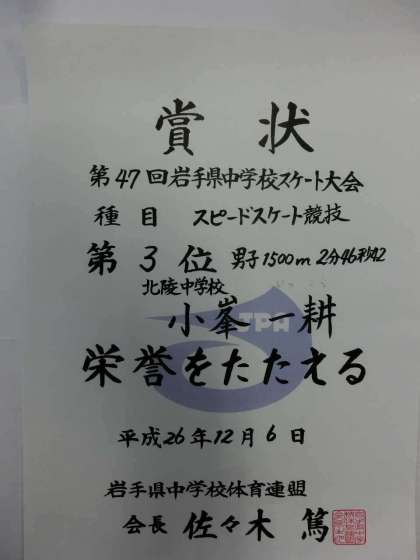 賞状
第47回岩手県中学校スケート大会
種目 スピードスケート競技
第3位 男子1500m 2分46秒42
北陵中学校
小峯一耕
JPA
栄誉をたたえる
平成26年12月6日
岩手県中学校体育連盟
会長 佐々木篤